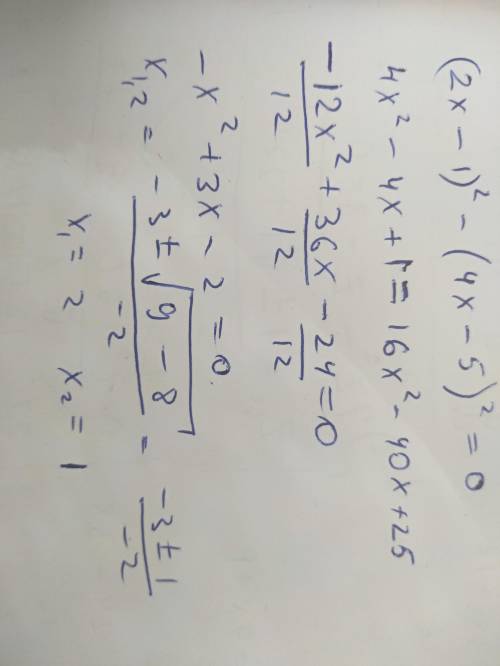 (2x - 1)² - (4x - 5)² = 0
4x² - 4x + 1 = 16x² - 40x + 25
-12x²/12 + 36x/12 - 24/12 = 0
-x² + 3x - 2 = 0
x₁,₂ = (-3 ± √(9 - 8))/(-2) = (-3 ± 1)/(-2)
x₁ = 2 x₂ = 1